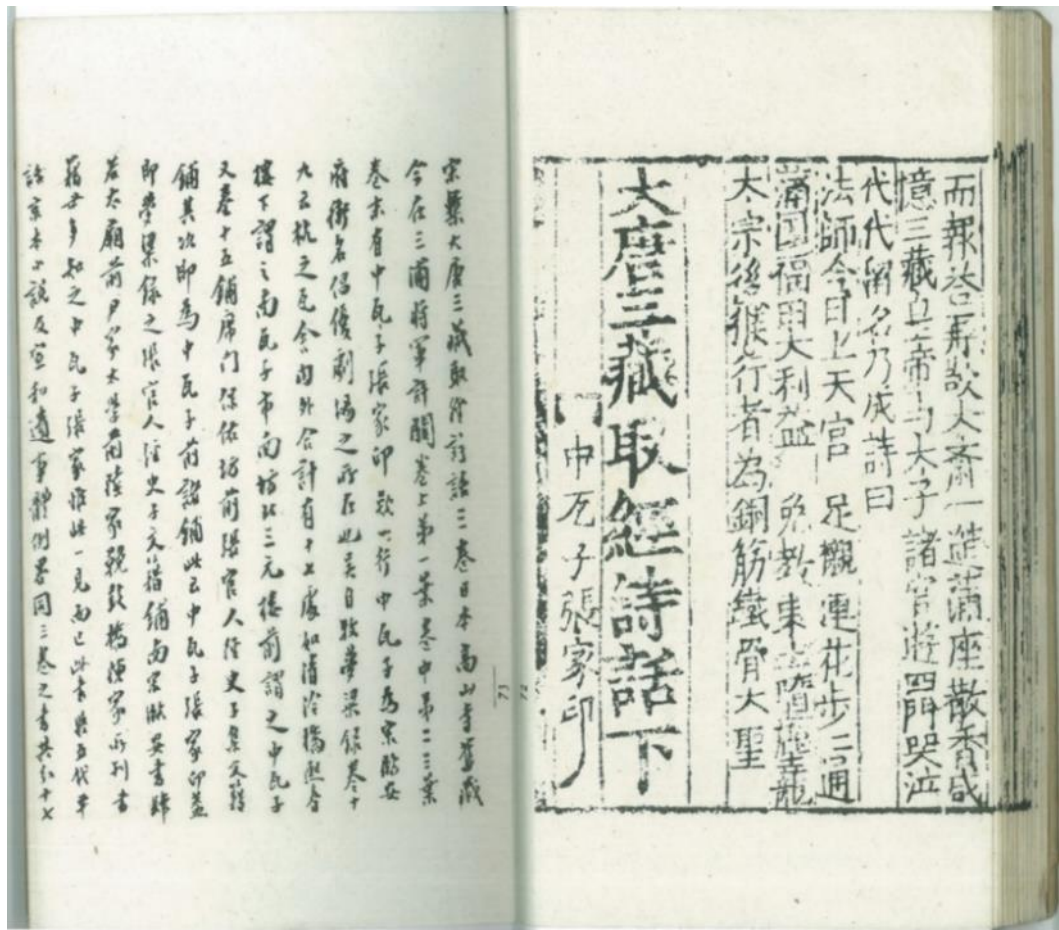 而報荅再設大斋一筵滿座散香咸
憶三藏皇帝與太子諸官遊四門哭泣
代代留名乃成詩曰
法師今日上天宮　足襯連花步二通
滿国福田大利益　免教東土墮塵籠
太宗後猴行者為銅筋鐵骨大聖
大唐三藏取經詩話下
中瓦子張家印
宋槧大唐三藏取經詩話三卷日本高山寺舊藏
今在三浦將軍許闕卷上第一葉卷中第二三葉
卷末有中瓦子張家印款一行中瓦子為宋臨安
府街名倡優劇場之所在也吳自牧夢粱錄卷十
九云杭之瓦舍內外合計有十七處如清泠橋熙春
樓下謂之南瓦子市南坊北三元樓前謂之中瓦子
又卷十五鋪席門保佑坊前張官人經史子集文籍
鋪其次即為中瓦子前諸鋪此云中瓦子張家印蓋
即夢粱錄之張官人經史子文籍鋪南宋臨安書肆
若太廟前尹家太學前陸家鞔鼓橋陳家所刊書
籍世多知之中瓦子張家惟此一見而已此書與五代平
話京本小說及宣和遺事體例略同三卷之書共分十七